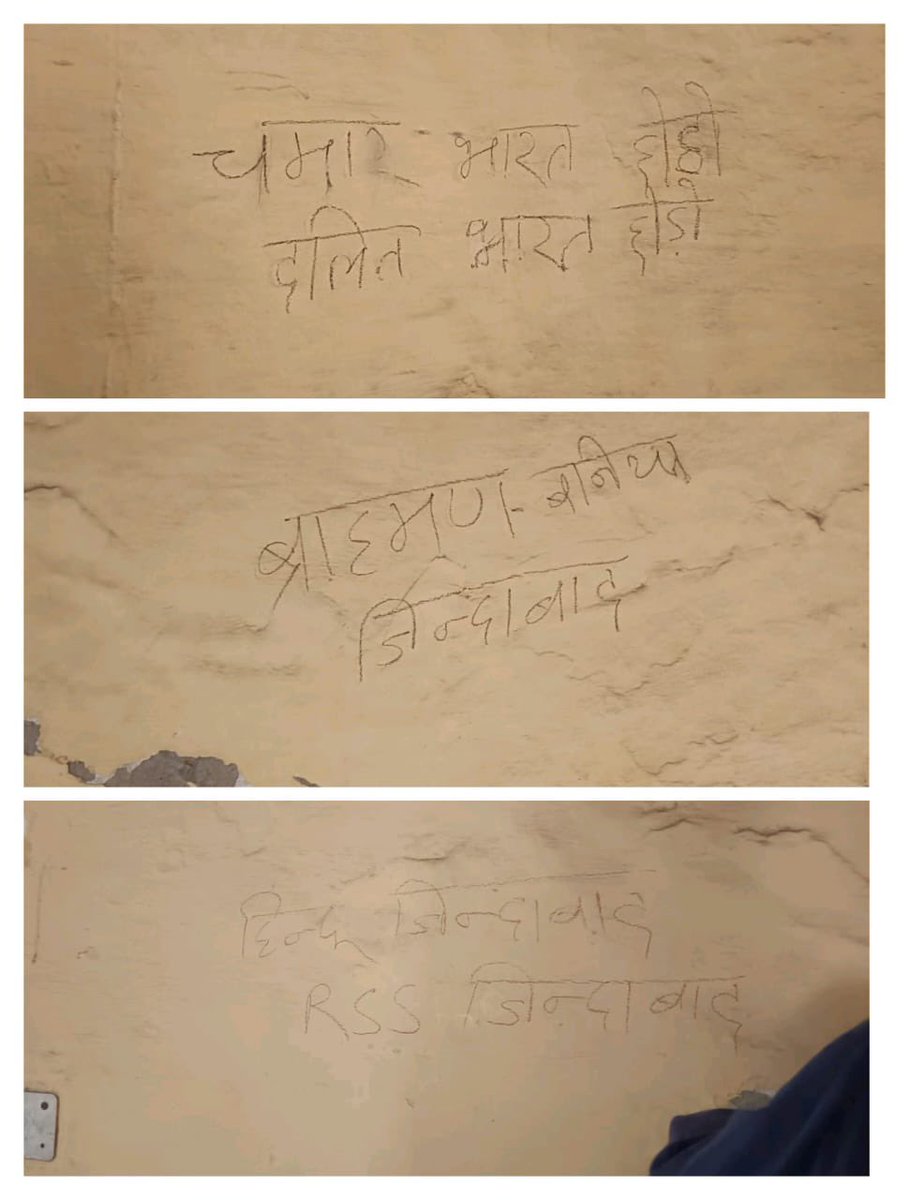 चमार भारत छोड़ो
दलित भारत छोड़ो
ब्राहमण-बनिया
जिन्दाबाद
हिन्दू जिन्दाबाद
RSS जिन्दाबाद